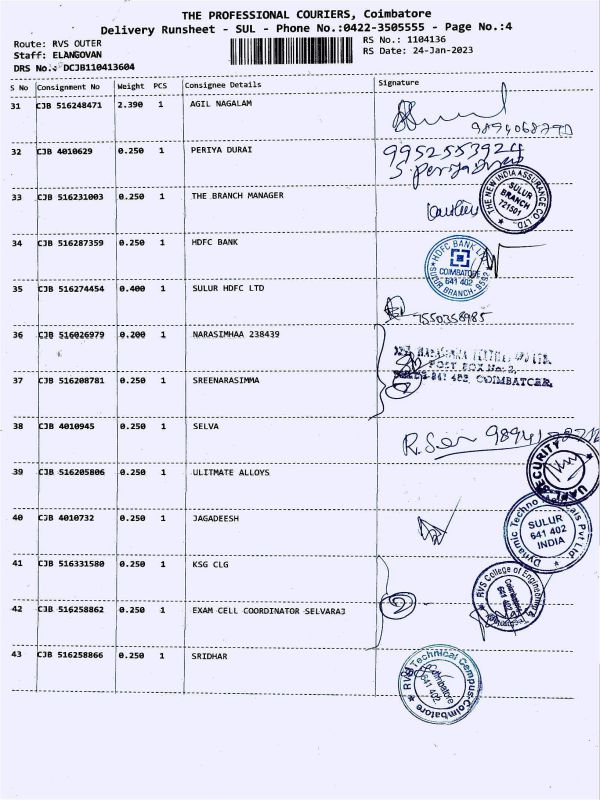 THE PROFESSIONAL COURIERS, Coimbatore
Delivery Runsheet - SUL - Phone No.:0422-3505555 - Page No.:4
Route: RVS OUTER
Staff: ELANGOVAN
DRS No.: DCJB110413604
RS No.: 1104136
RS Date: 24-Jan-2023
S No Consignment No Weight PCS Consignee Details Signature
31 CJB 516248471 2.390 1 AGIL NAGALAM
32 CJB 4010629 0.250 1 PERIYA DURAI
9952553924
S. Periya Durai
33 CJB 516231003 0.250 1 THE BRANCH MANAGER
THE NEW INDIA ASSURANCE CO LTD
SULUR
BRANCH
721501
34 CJB 516287359 0.250 1 HDFC BANK
HDFC BANK LTD
COIMBATORE
641 402
SULUR BRANCH
35 CJB 516274454 0.400 1 SULUR HDFC LTD
7550358985
36 CJB 516026979 0.200 1 NARASIMHAA 238439
POST BOX No: 2,
COIMBATORE.
37 CJB 516208781 0.250 1 SREENARASIMMA
38 CJB 4010945 0.250 1 SELVA
39 CJB 516205806 0.250 1 ULITMATE ALLOYS
SECURITY
40 CJB 4010732 0.250 1 JAGADEESH
SULUR
641 402
INDIA
41 CJB 516331580 0.250 1 KSG CLG
RVS College of Engineering &
Coimbatore
42 CJB 516258862 0.250 1 EXAM CELL COORDINATOR SELVARAJ
43 CJB 516258866 0.250 1 SRIDHAR
RVS Technical Campus-Coimbatore
Coimbatore
641 402